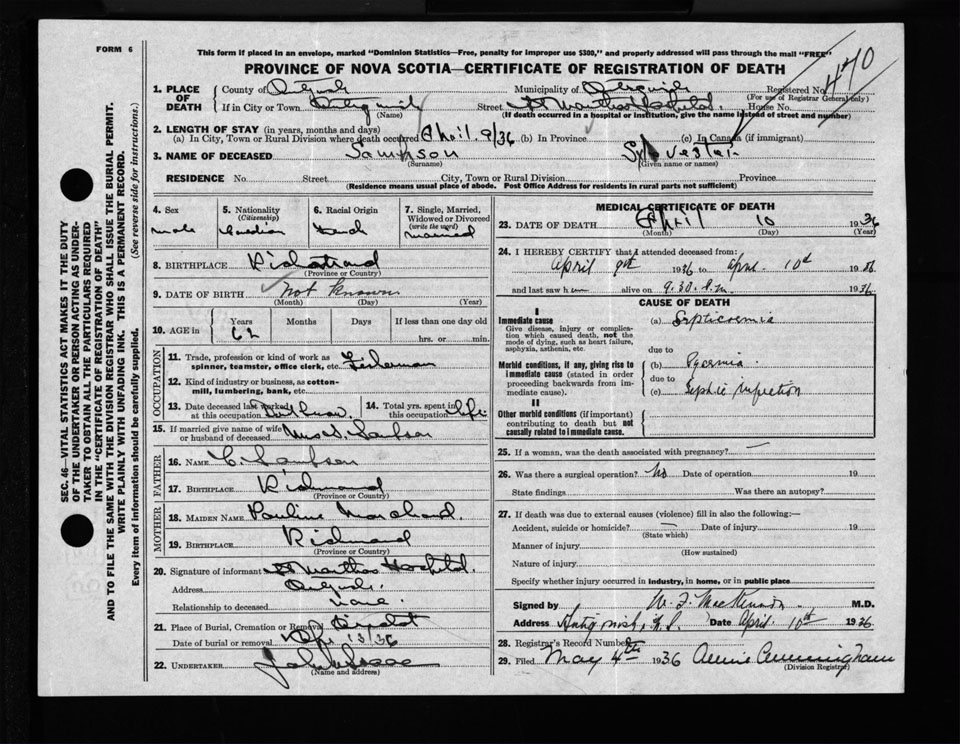 FORM 6
This form if placed in an envelope, marked "Dominion Statistics—Free, penalty for improper use $300," and properly addressed will pass through the mail "FREE"
PROVINCE OF NOVA SCOTIA—CERTIFICATE OF REGISTRATION OF DEATH
470
1. PLACE OF DEATH County of Municipality of Registered No.
(For use of Registrar General only)
If in City or Town Street St Marthas Hospital House No.
(Name) (If death occurred in a hospital or institution, give the name instead of street and number)
2. LENGTH OF STAY (in years, months and days)
(a) In City, Town or Rural Division where death occurred April 9/36 (b) In Province (c) In Canada (if immigrant)
3. NAME OF DECEASED Sampson Sylvester
(Surname) (Given name or names)
RESIDENCE No. Street City, Town or Rural Division Province
(Residence means usual place of abode. Post Office Address for residents in rural parts not sufficient)
4. Sex male
5. Nationality (Citizenship) Canadian
6. Racial Origin French
7. Single, Married, Widowed or Divorced (write the word) married
8. BIRTHPLACE
(Province or Country)
9. DATE OF BIRTH Not Known
(Month) (Day) (Year)
10. AGE in Years Months Days If less than one day old
62 hrs. or min.
OCCUPATION
11. Trade, profession or kind of work as spinner, teamster, office clerk, etc. Fisherman
12. Kind of industry or business, as cotton-mill, lumbering, bank, etc.
13. Date deceased last worked at this occupation Dont know
14. Total yrs. spent in this occupation Life
15. If married give name of wife or husband of deceased Mrs S. Sampson
FATHER
16. NAME C. Sampson
17. BIRTHPLACE Richmond
(Province or Country)
MOTHER
18. MAIDEN NAME Pauline Marchand
19. BIRTHPLACE Richmond
(Province or Country)
20. Signature of informant St Marthas Hospital
Address
Relationship to deceased none
21. Place of Burial, Cremation or Removal
Date of burial or removal 13/36
22. UNDERTAKER
(Name and address)
MEDICAL CERTIFICATE OF DEATH
23. DATE OF DEATH April 10 1936
(Month) (Day) (Year)
24. I HEREBY CERTIFY that I attended deceased from:
April 9th 1936 to April 10th 1936
and last saw him alive on 9.30 1936
CAUSE OF DEATH
I
Immediate cause (a) Septicaemia
Give disease, injury or complication which caused death, not the mode of dying, such as heart failure, asphyxia, asthenia, etc.
due to
Morbid conditions, if any, giving rise to immediate cause (stated in order proceeding backwards from immediate cause).
(b) Pyaemia
due to
(c) Septic infection
II
Other morbid conditions (if important) contributing to death but not causally related to immediate cause.
25. If a woman, was the death associated with pregnancy? —
26. Was there a surgical operation? No Date of operation 19
State findings Was there an autopsy?
27. If death was due to external causes (violence) fill in also the following:—
Accident, suicide or homicide? — Date of injury 19
(State which)
Manner of injury
(How sustained)
Nature of injury
Specify whether injury occurred in industry, in home, or in public place
Signed by W. F. MacKinnon M.D.
Address Antigonish, N.S. Date April 10th 1936
28. Registrar's Record Number
29. Filed May 4th 1936 Annie Cunningham
(Division Registrar)
SEC. 46—VITAL STATISTICS ACT MAKES IT THE DUTY
OF THE UNDERTAKER OR PERSON ACTING AS UNDER-
TAKER TO OBTAIN ALL THE PARTICULARS REQUIRED
IN THE "CERTIFICATE OF REGISTRATION OF DEATH"
AND TO FILE THE SAME WITH THE DIVISION REGISTRAR WHO SHALL ISSUE THE BURIAL PERMIT.
WRITE PLAINLY WITH UNFADING INK. THIS IS A PERMANENT RECORD.
Every item of information should be carefully supplied. (See reverse side for instructions.)